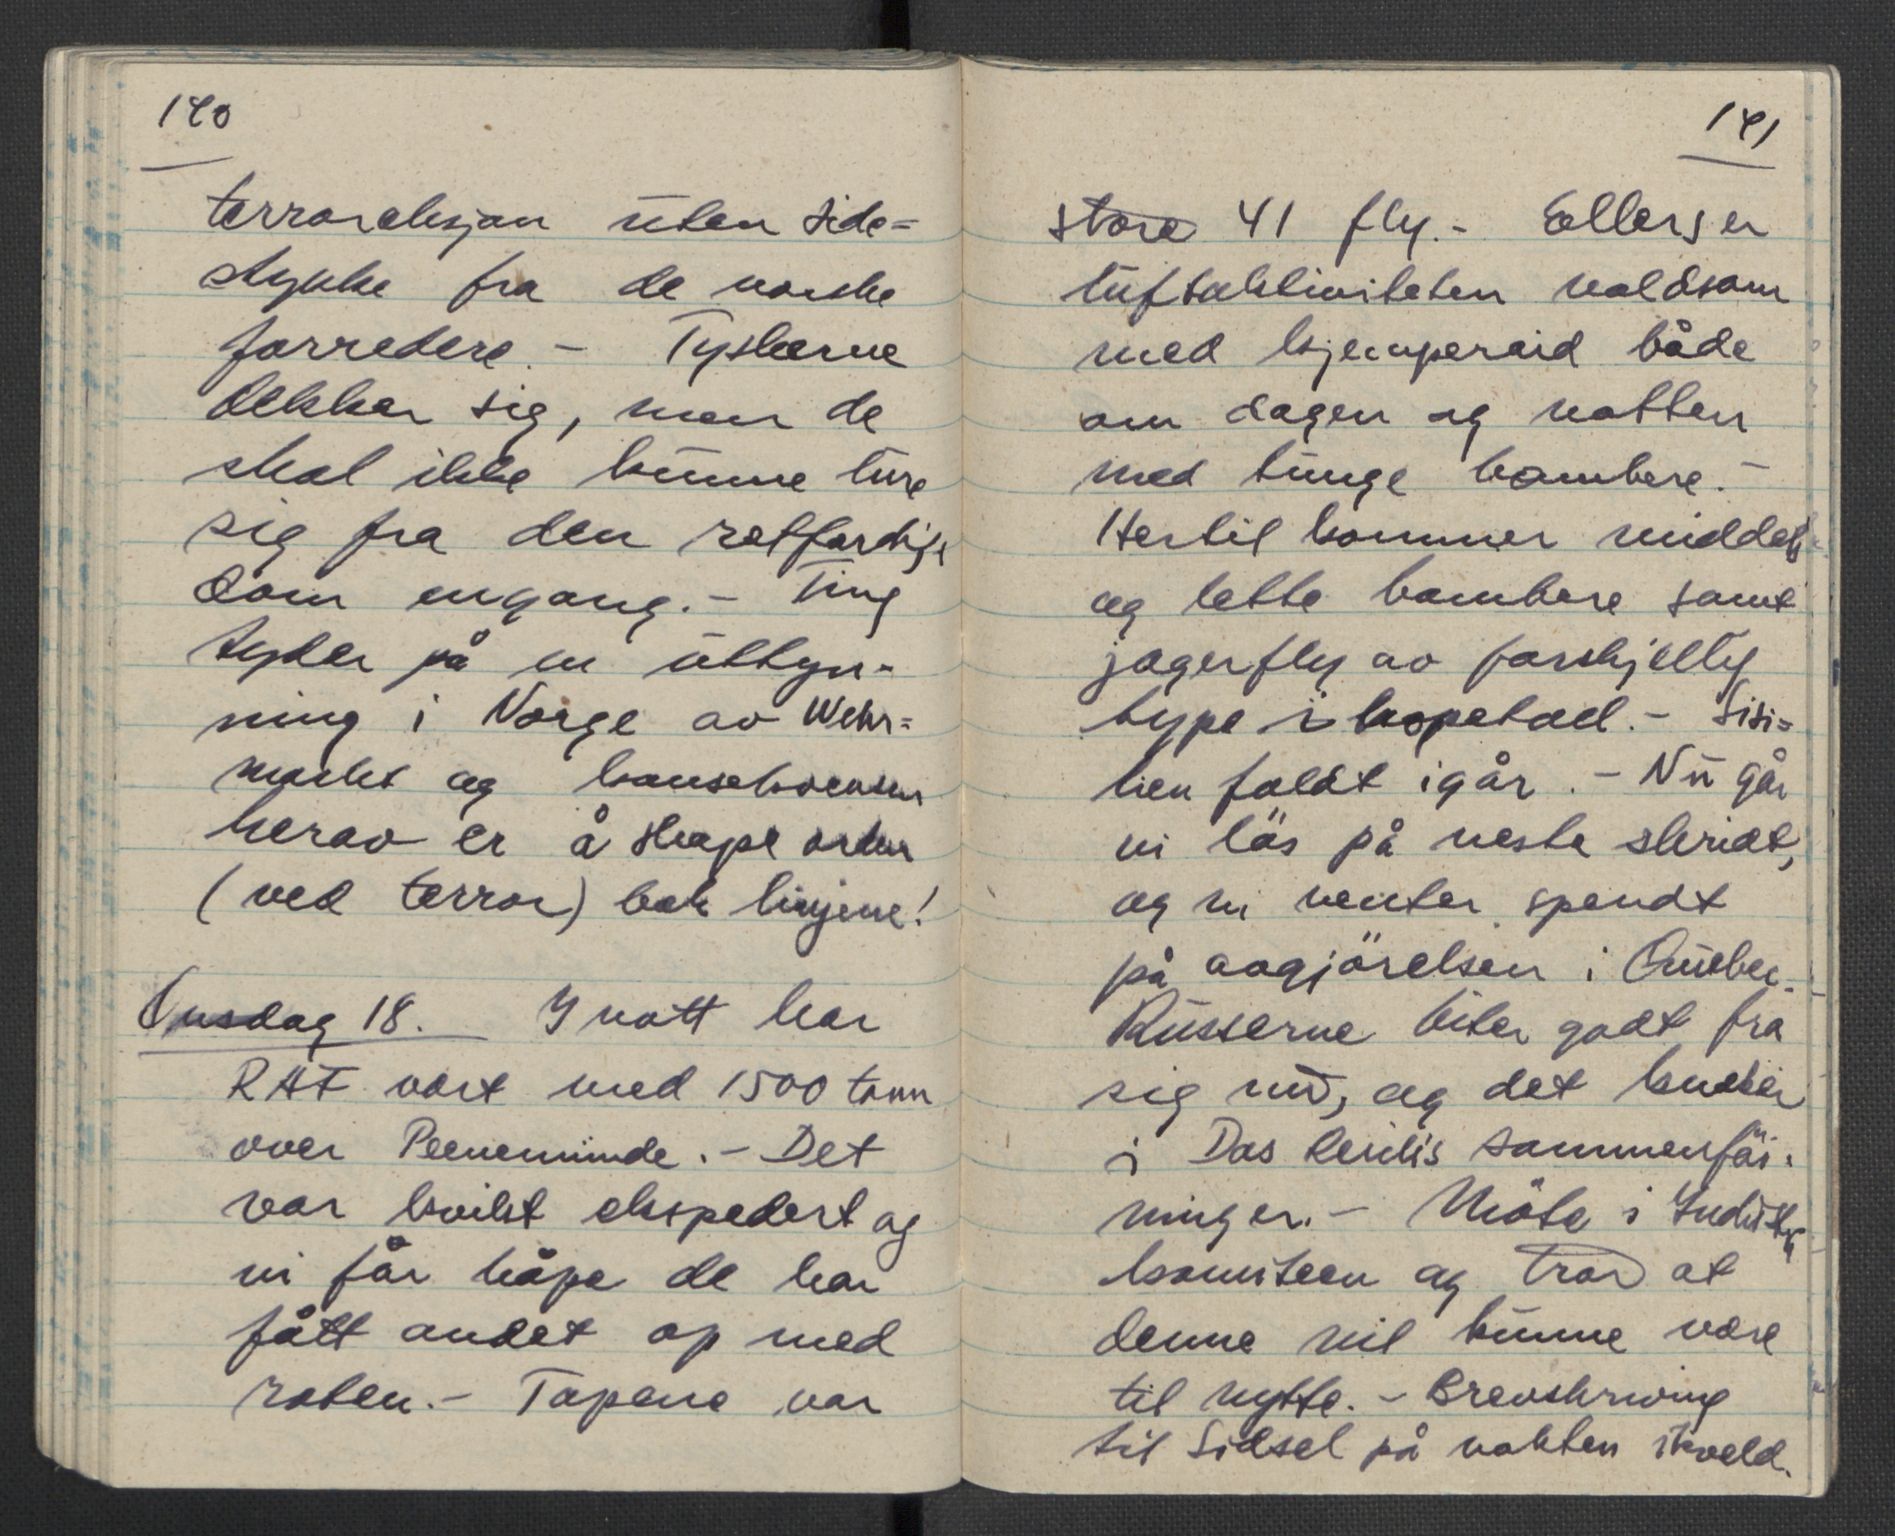 140
terroraksjon uten side=
stykke fra de norske
forredere. - Tyskerne
dekker sig, men de
skal ikke kunne lure
sig fra den retfærdige
dom engang. - Ting
tyder på en uttyn-
ning i Norge av Wehr=
macht og konsekvensen
herav er å skape orden
(ved terror) bak linjene!
Onsdag 18. I natt har
RAF vært med 1500 tonn
over Peenemünde. - Det
var kvikt ekspedert og
vi får håpe de har
fått andet op med
roten. - Tapene var
141
store 41 fly. - Ellers er
luftaktiviteten voldsom
med kjemperaid både
om dagen og natten
med tunge bombere. -
Hertil kommer middels
og lette bombere samt
jagerfly av forskjellig
type i hopetad. - Sisi=
lien faldt igår. - Nu går
vi løs på neste skridt,
og vi venter spendt
på avgjörelsen i Quebec. -
Russerne biter godt fra
sig nu, og det knaker
i Das Reichs sammenföi-
ninger. - Möte i Industri
komiteen og tror at
denne vil kunne være
til nytte. - Brevskriving
til Sidsel på vakten ikveld.